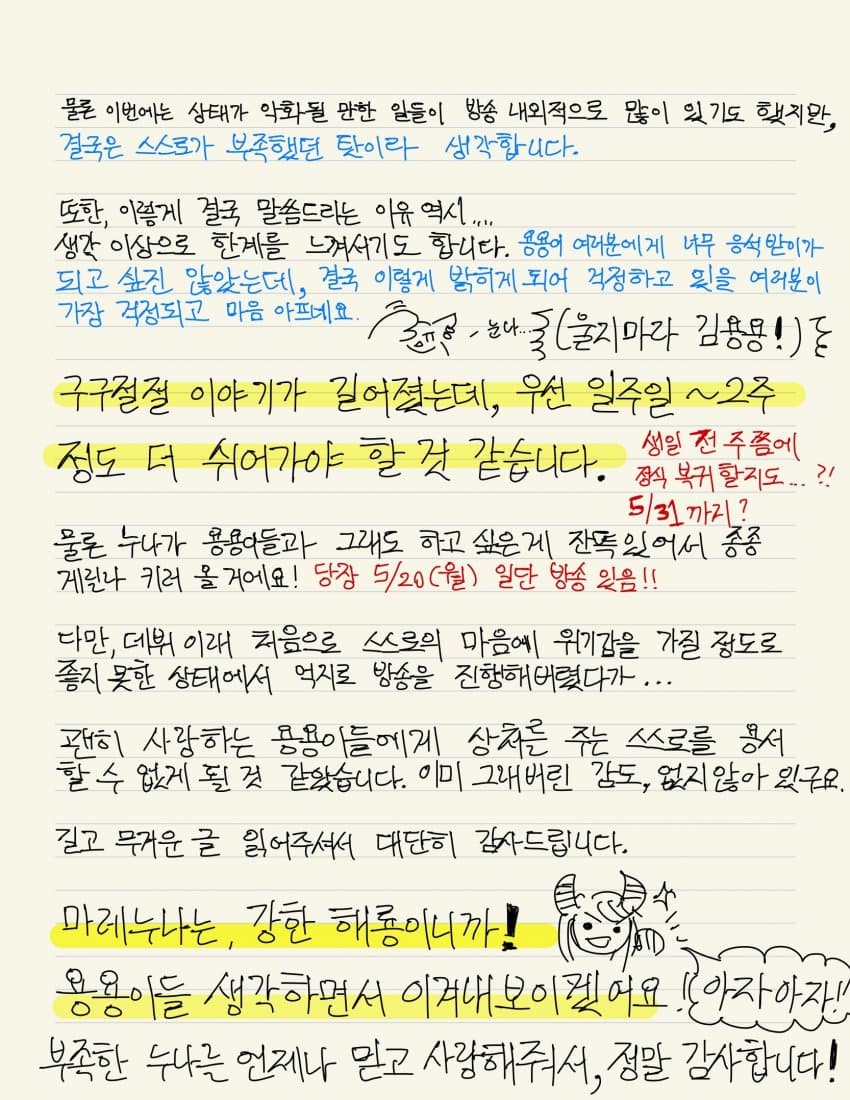 물론 이번에는 상태가 악화될 만한 일들이 방송 내외적으로 많이 있기도 했지만,
결국은 스스로가 부족했던 탓이라 생각합니다.
또한, 이렇게 결국 말씀드리는 이유 역시....
생각 이상으로 한계를 느껴서기도 합니다. 용용이 여러분에게 너무 응석받이가
되고 싶진 않았는데, 결국 이렇게 밝히게 되어 걱정하고 있을 여러분이
가장 걱정되고 마음 아프네요.
눈나... (울지마라 김용용!)
구구절절 이야기가 길어졌는데, 우선 일주일 ~2주
정도 더 쉬어가야 할 것 같습니다.
생일 전 주쯤에
정식 복귀 할지도...?!
5/31까지?
물론 누나가 용용이들과 그래도 하고 싶은게 잔뜩있어서 종종
게릴라 키러 올거에요! 당장 5/20(월) 일단 방송 있음!!
다만, 데뷔 이래 처음으로 스스로의 마음에 위기감을 가질 정도로
좋지 못한 상태에서 억지로 방송을 진행해버렸다가...
괜히 사랑하는 용용이들에게 상처를 주는 스스로를 용서
할 수 없게 될 것 같았습니다. 이미 그래버린 감도, 없지않아 있구요.
길고 무거운 글 읽어주셔서 대단히 감사드립니다.
마레누나는, 강한 해룡이니까!
용용이들 생각하면서 이겨내보이겠어요!
아자아자!!
부족한 누나를 언제나 믿고 사랑해줘서, 정말 감사합니다!